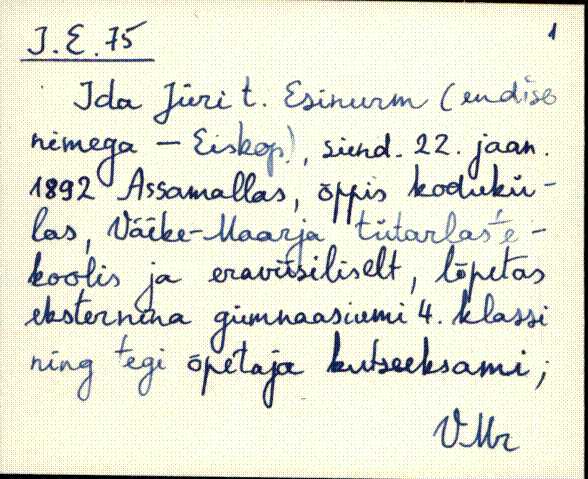 I.E.75
1
Ida Jüri t. Esinurm (endise
nimega – Eiskop), siend. 22. jaan.
1892 Assamallas, õppis kodukü-
las, Väike-Maarja tütarlaste-
koolis ja eraviisiliselt, lõpetas
eksternina gümnaasiumi 4. klassi
ning tegi õpetaja kutseeksami;
VMr